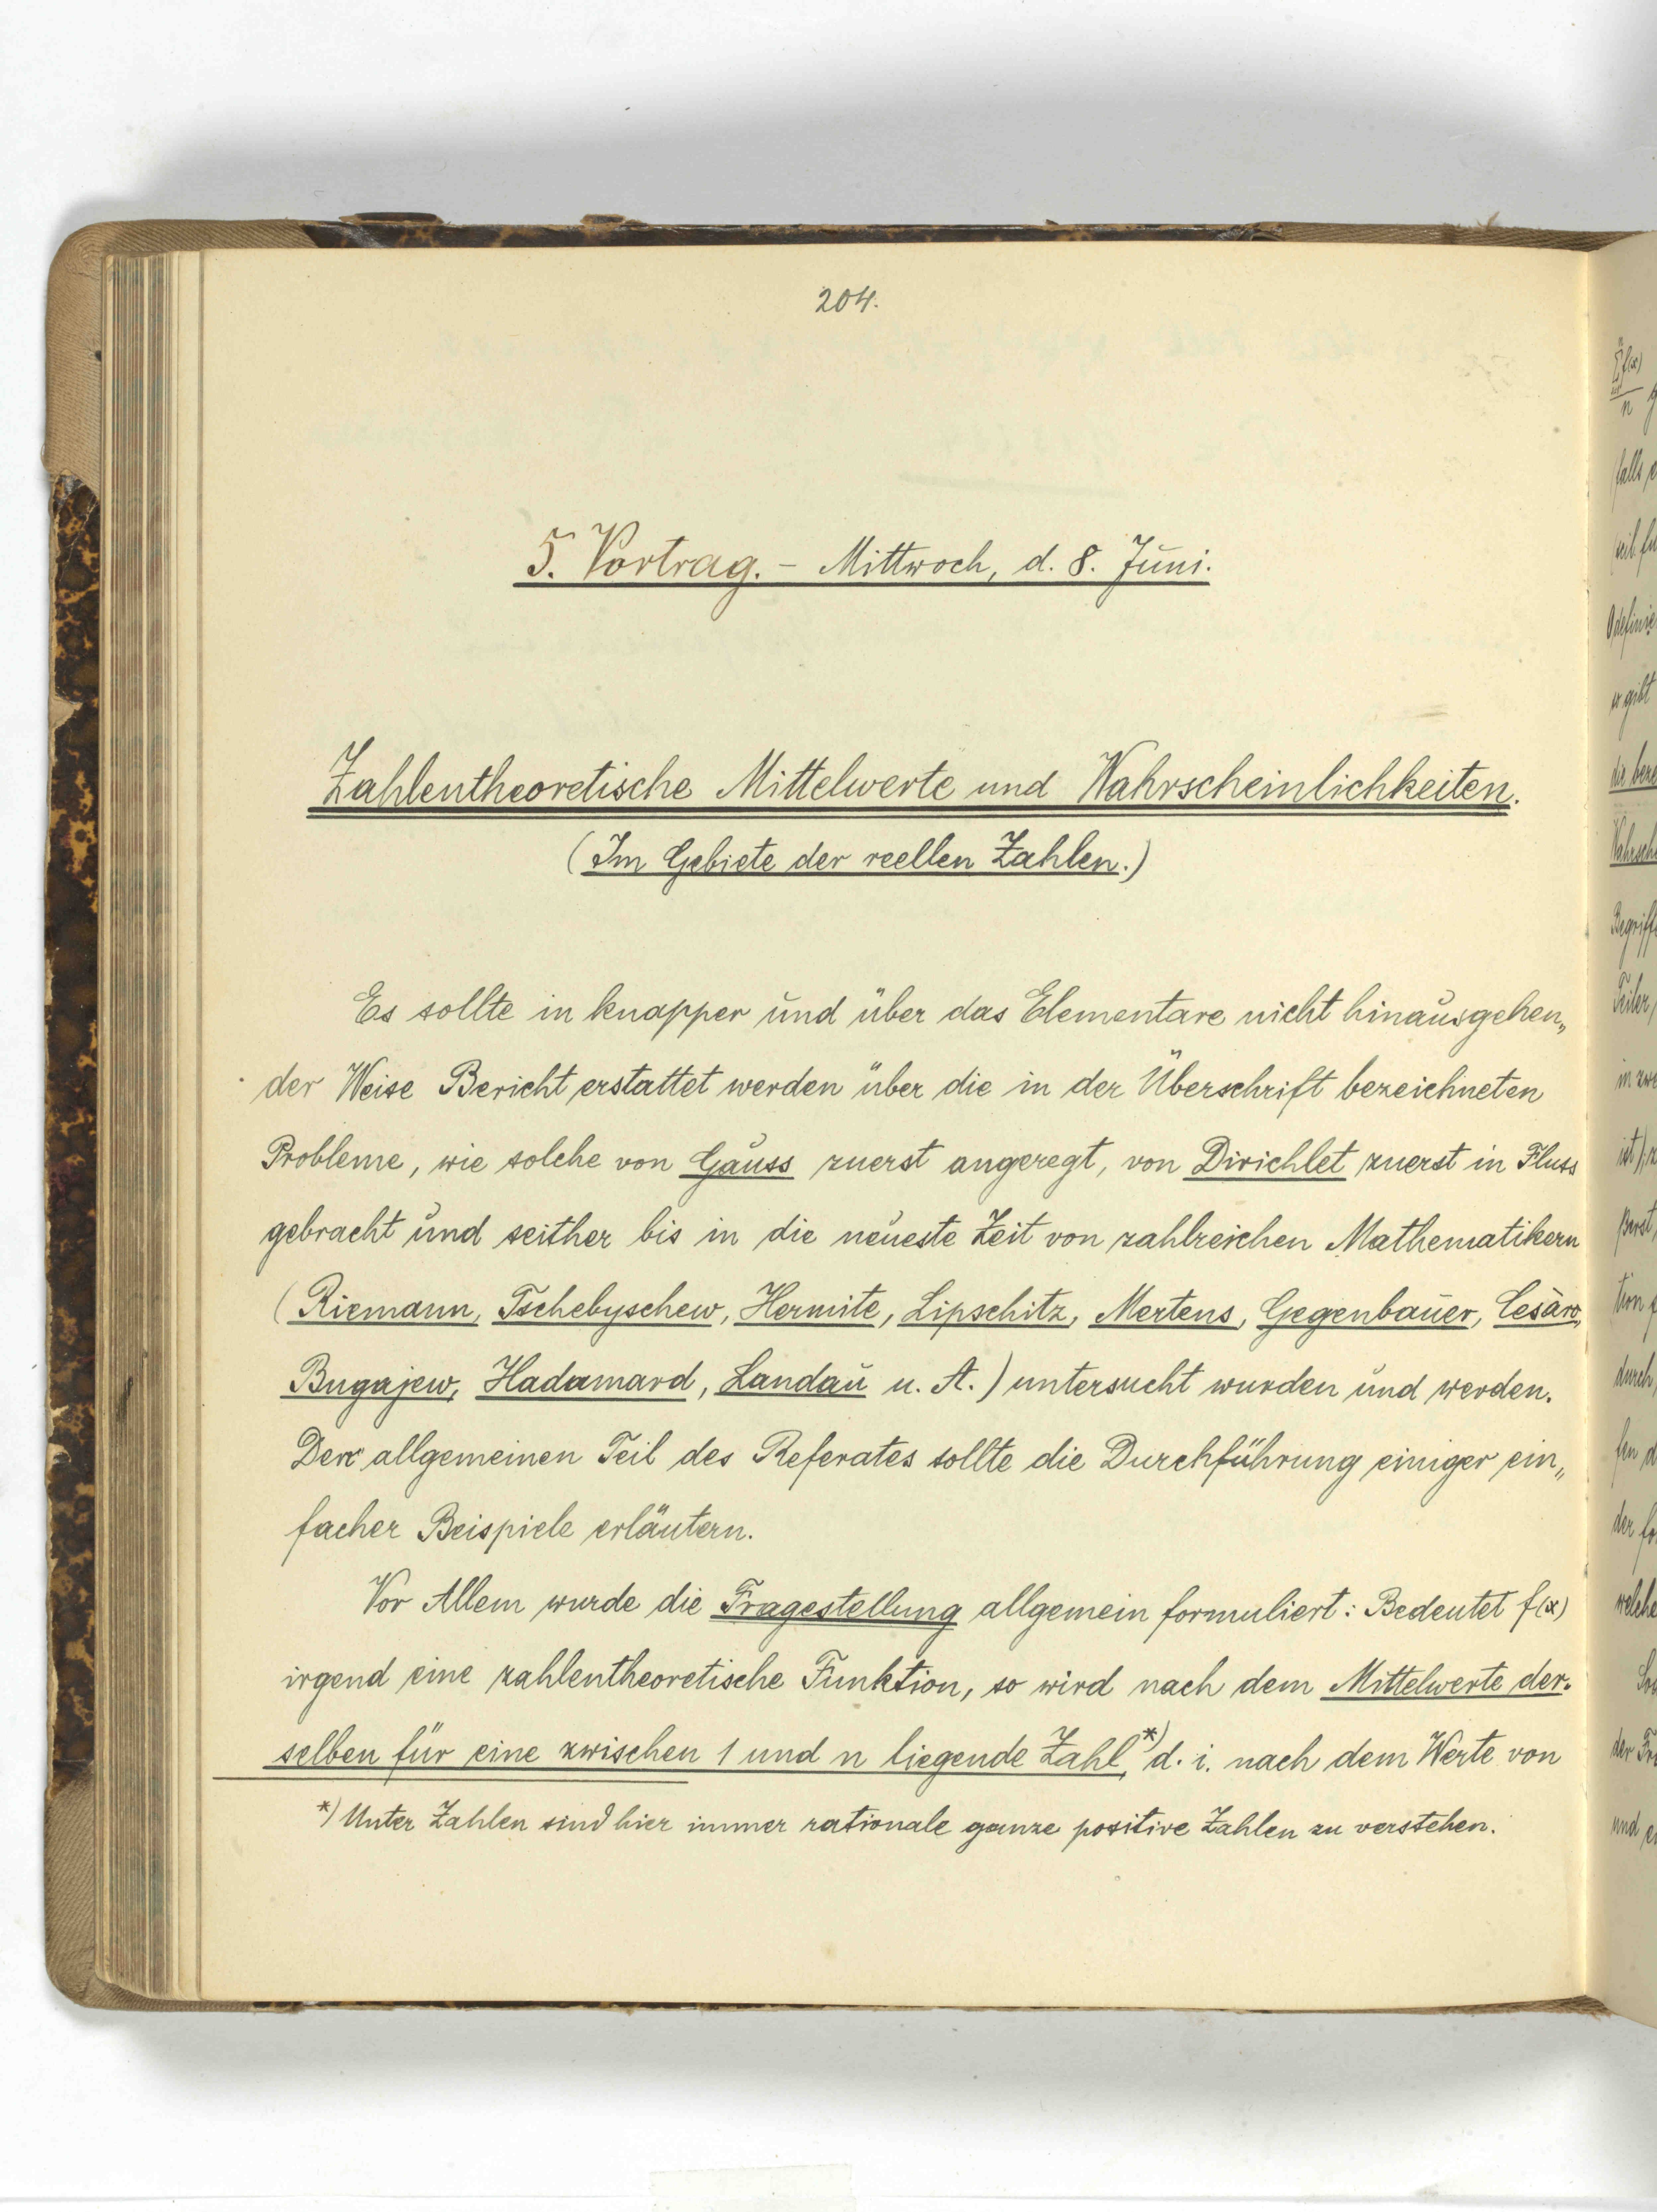 204.
5. Vortrag. – Mittwoch, d. 8. Juni.
Zahlentheoretische Mittelwerte und Wahrscheinlichkeiten.
(Im Gebiete der reellen Zahlen.)
Es sollte in knapper und über das Elementare nicht hinausgehen„
der Weise Bericht erstattet werden über die in der Überschrift bezeichneten
Probleme, wie solche von Gauss zuerst angeregt, von Dirichlet zuerst in Fluss
gebracht und seither bis in die neueste Zeit von zahlreichen Mathematikern
(Riemann, Tschebyschew, Hermite, Lipschitz, Mertens, Gegenbauer, Cesàro,
Bugajew, Hadamard, Landau u. A.) untersucht wurden und werden.
Den allgemeinen Teil des Referates sollte die Durchführung einiger ein„
facher Beispiele erläutern.
Vor Allem wurde die Fragestellung allgemein formuliert: Bedeutet f(x)
irgend eine zahlentheoretische Funktion, so wird nach dem Mittelwerte der-
selben für eine zwischen 1 und n liegende Zahl,*) d. i. nach dem Werte von
*) Unter Zahlen sind hier immer rationale ganze positive Zahlen zu verstehen.